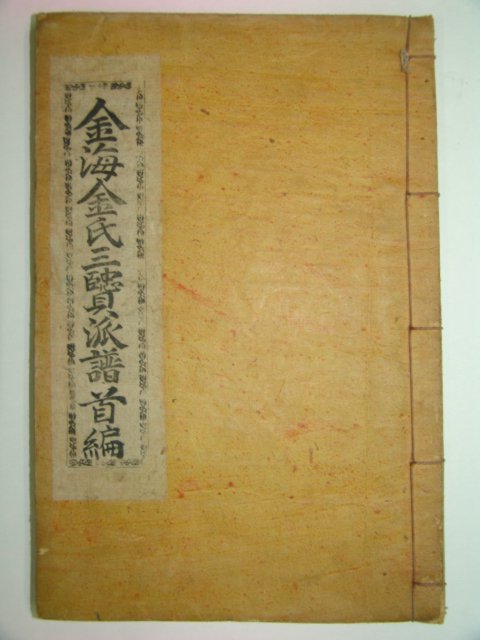 金海金氏三賢派譜首編